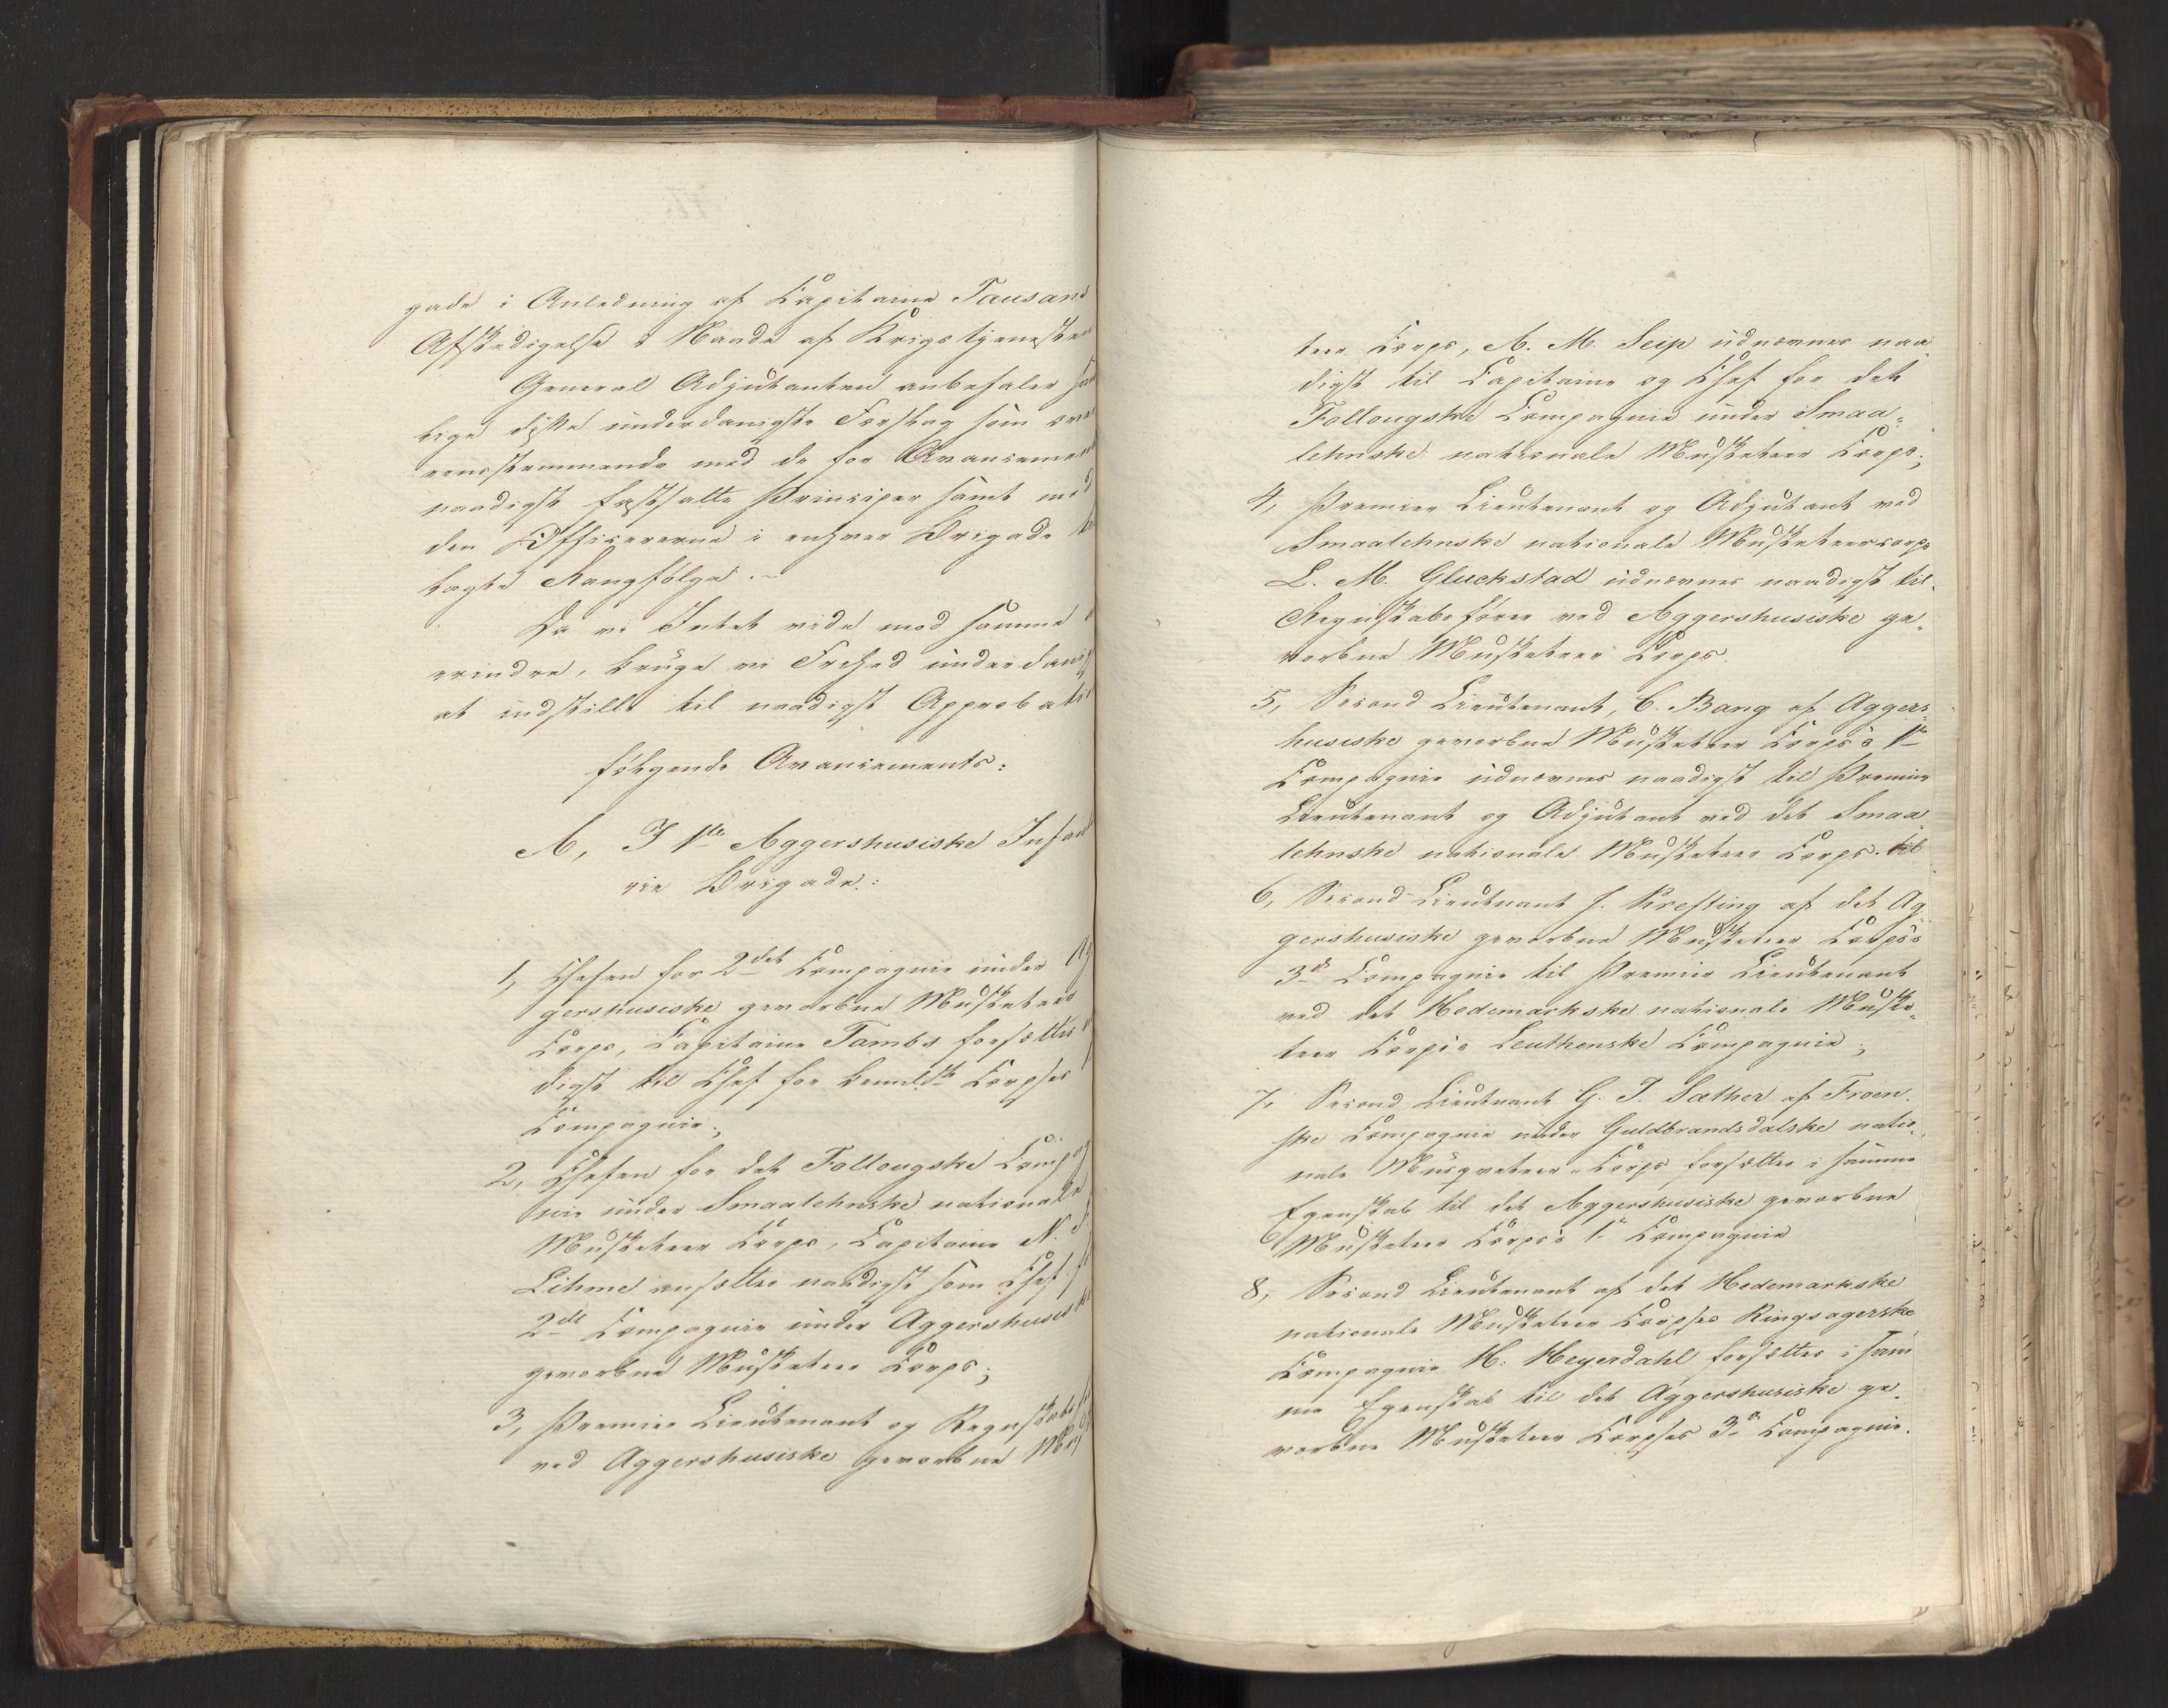 gade i Anledning af Capitaine Tausans
Afskedigelse i Naade af Krigstjenesten
General Adjutanten anbefaler
lige disse underdanigste Forslag som over
eensstemmende med de for Avancement
naadigst fastsatte Principer samt med
den Officererne i enhver Brigade
lagte Rangfølge.
Da vi Intet vide mod samme
erindre, bruge vi Frihed underdanigst
at indstille til naadigst Approbation
følgende Avancements:
A, I 1ste Aggershusiske Infante
rie Brigade:
1, Chefen for 2det Compagnie under Ag
gershusiske gevorbne Musketeer
Corps, Capitaine Tambs forsættes
digst til Chef for bemeldte Corpses
Compagnie;
2, Chefen for det Follougske Compag
nie under Smaalehnske nationale
Musketeer Corps, Capitaine N.
Lihme ansættes naadigst som Chef for
2det Compagnie under Aggershusiske
gevorbne Musketeer Corps;
3, Premier Lieutenant og Regnskabs
ved Aggershusiske gevorbne Mus
teer Corps, A. M. Seip udnævnes naa
digst til Capitaine og Chef for det
Follougske Compagnie under Smaa-
lehnske nationale Musketeer Corps;
4, Premier Lieutenant og Adjutant ved
Smaalehnske nationale Musketeercorps
L. M. Gluckstad udnævnes naadigst til
Regnskabsfører ved Aggershusiske ge-
vorbne Musketeer Corps.
5, Second Lieutenant, C. Bang af Aggers-
husiske gevorbne Musketeer Corps's 1ste
Compagnie udnævnes naadigst til Premier
Lieutenant og Adjutant ved det Smaa
lehnske nationale Musketeer Corps. til
6, Second Lieutnant J. Krefting af det Ag
gershusiske gevorbne Musketeer Corps's
3de Compagnie til Premier Lieutenant
ved det Hedemarkske nationale Muske-
teer Corps's Leuthenske Compagnie;
7, Second Lieutnant G. T. Sæther af Froen-
ske Compagnie under Guldbrandsdalske natio-
nale Musqueteer-Corps forsættes i samme
Egenskab til det Aggershusiske gevorbne
Musketeer Corps's 1ste Compagnie
8, Second Lieutenant af det Hedemarkske
nationale Musketeer Corpses Ringsagerske
Compagnie H. Heyerdahl forsættes i sam
me Egenskab til det Aggershusiske ge-
vorbne Musketeer Corpses 3de Compagnie.